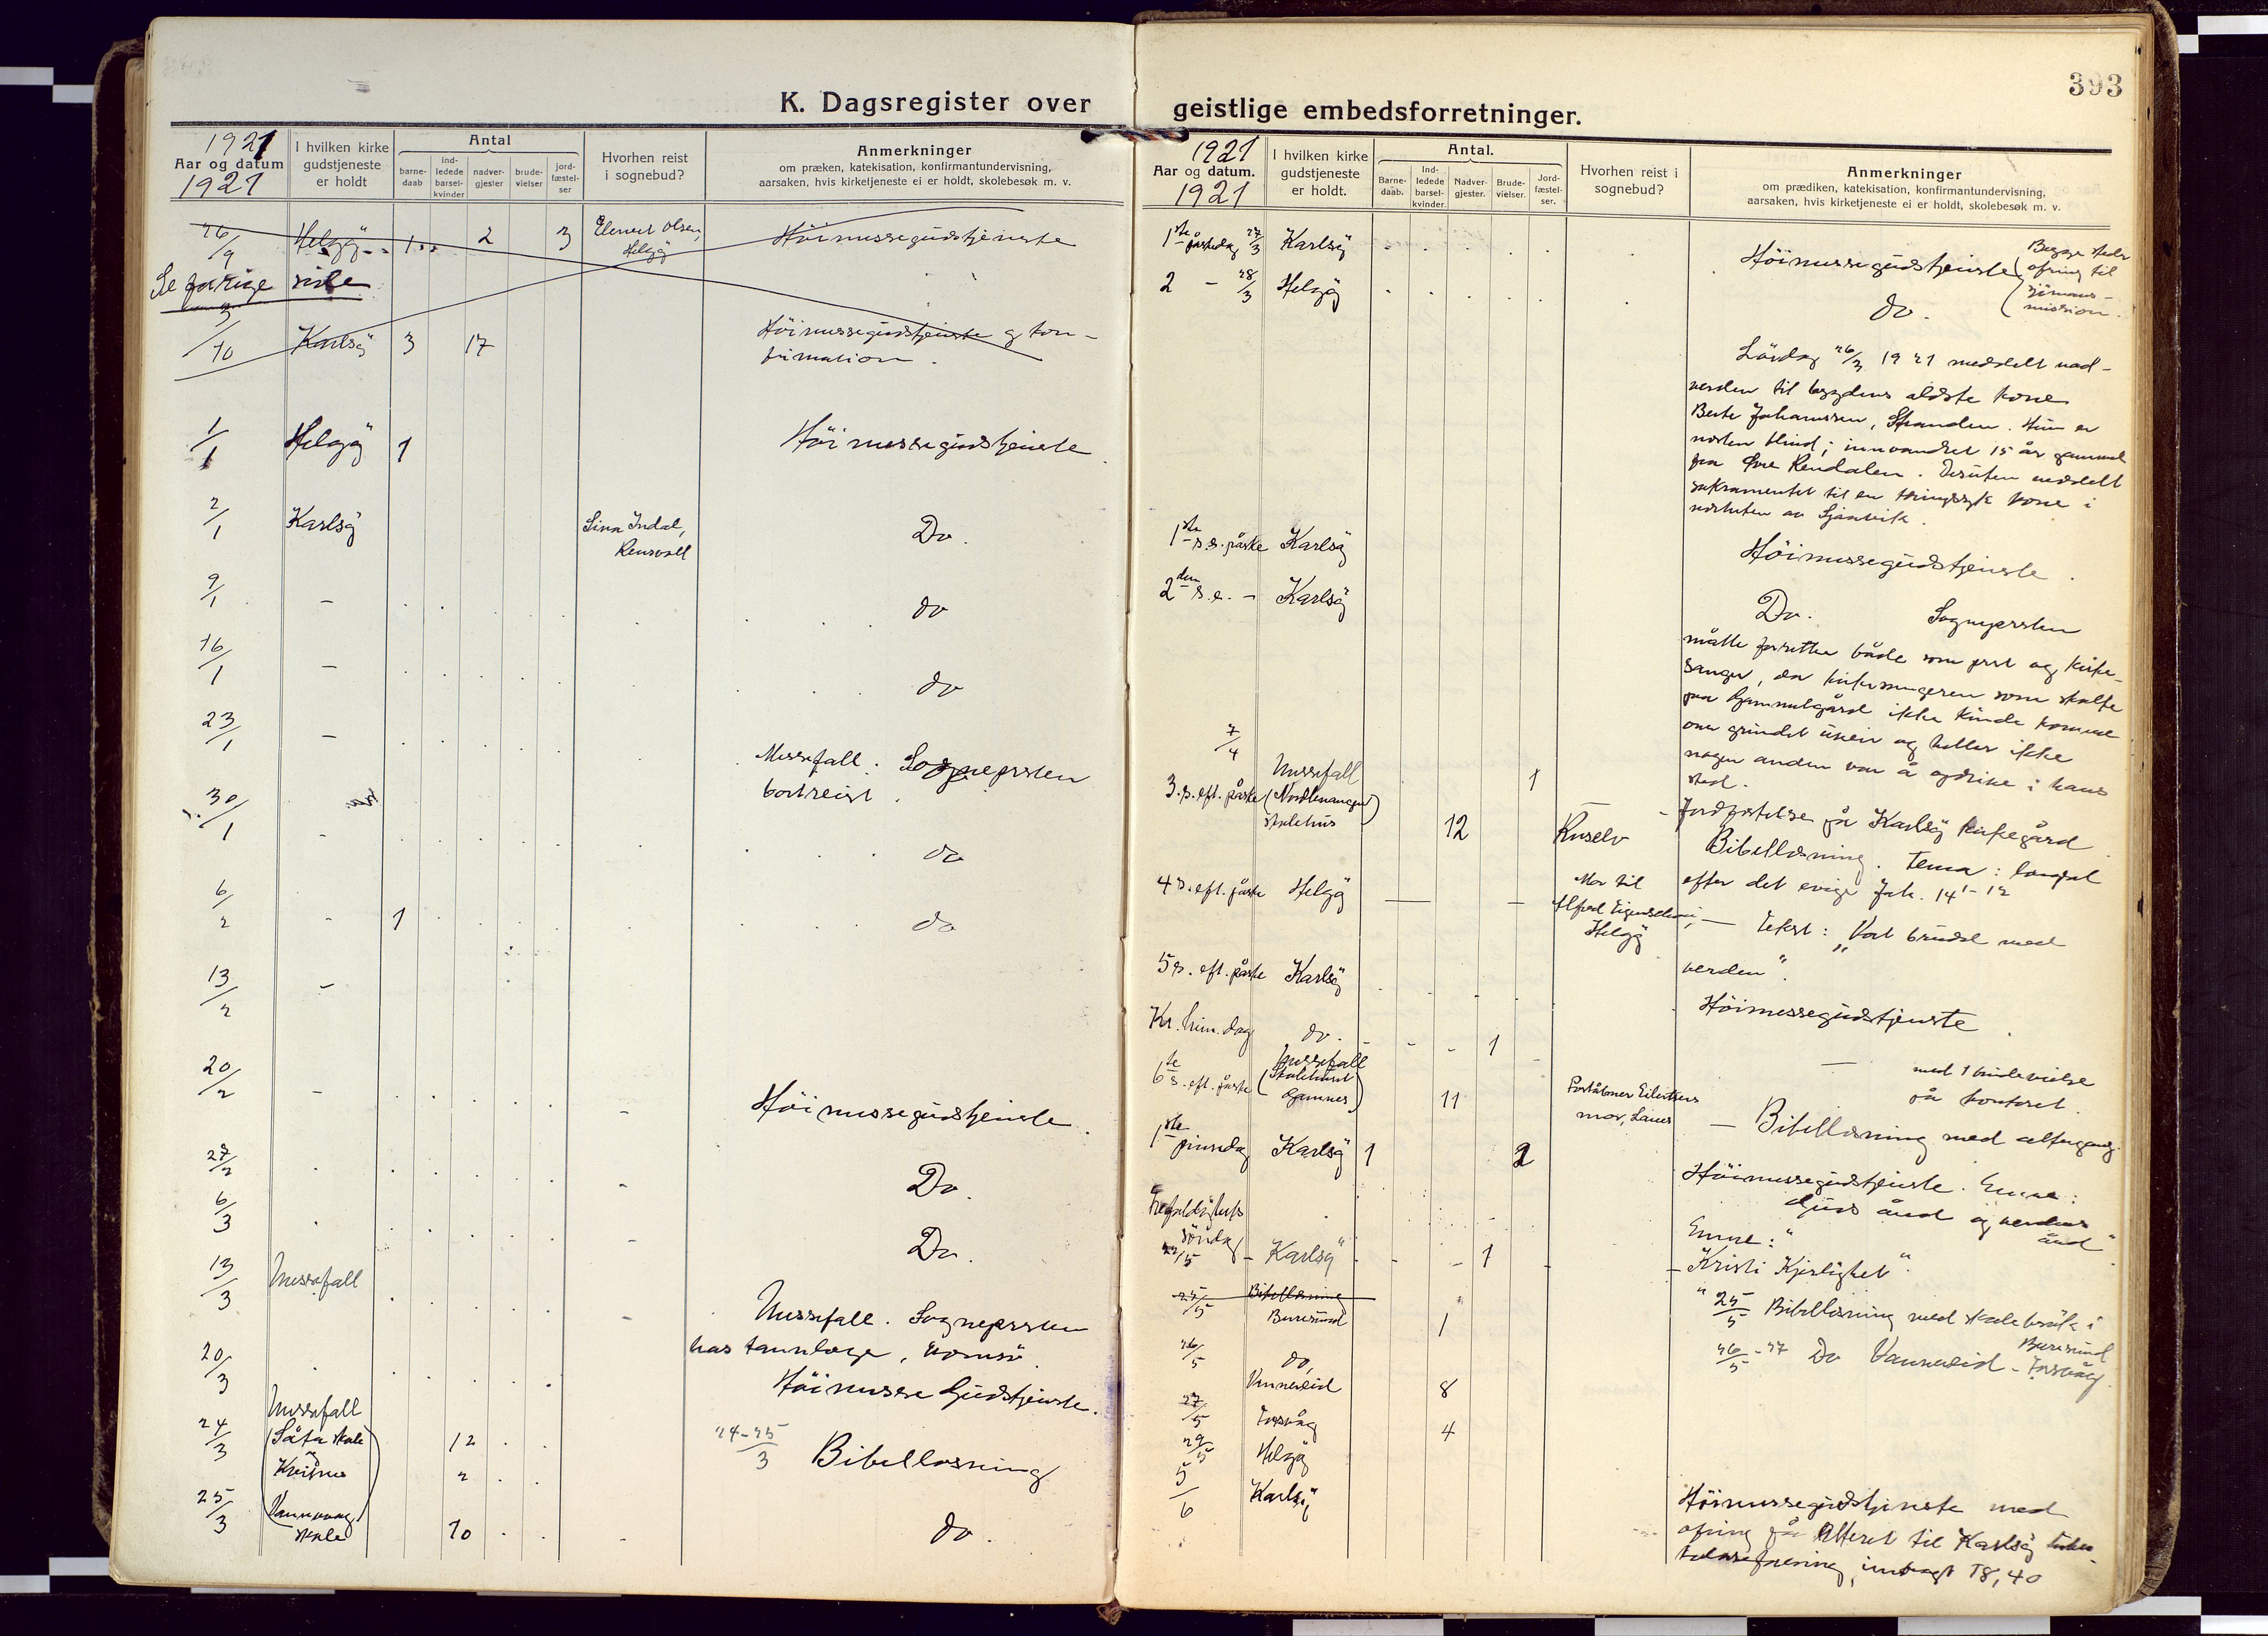 K. Dagsregister over
1921
Aar og datum
1921
I hvilken kirke
gudstjeneste
er holdt
Antal
barne-
daab
ind-
ledede
barsel-
kvinder
nadver-
gjester
brude-
vielser
jord-
fæstel-
ser
Hvorhen reist
i sognebud?
Anmerkninger
om præken, katekisation, konfirmantundervisning,
aarsaken, hvis kirkeljeneste ei er holdt, skolebesøk m. v.
26/9 Helgöy 1 2 3 Olsen, Helgöy Höimessegudstjeneste
Se forrige side
3/10 Karlsöy 3 17 Höimessegudstjeneste og kon-
firmation.
1/1 Helgöy 1 Höimessegudstjeneste.
2/1 Karlsöy Lina Indal, Do.
9/1 - do
16/1 - do
23/1 - Messefall. Sogneprsten
bortreist.
30/1 - do
6/2 - 1 do
13/2 -
20/2 - Höimessegudstjeneste.
27/2 Do.
6/3 Do.
13/3 Messefall Messefall. Sogneprsten
hos tannlæge, Tromsö.
20/3 Höimesse Gudstjeneste.
Messefall
24/3 (Såta skole 12 24-25/3 Bibellæsning
og
2
25/3 Vannavag
skole 10 do.
393
geistlige embedsforretninger.
1921
Aar og datum.
1921
I hvilken kirke
gudstjeneste
er holdt.
Antal.
Barne-
daab.
Ind-
ledede
barsel-
kvinder.
Nadver-
gjester.
Brude-
vielser.
Jord-
fæstel-
ser.
Hvorhen reist i
sognebud?
Anmerkninger
om prædiken, katekisation, konfirmantundervisning,
aarsaken, hvis kirketjeneste ei er holdt, skolebesøk m. v.
1ste påskedag 27/3 Karlsöy Höimessegudstjeneste (Begge steder
ofring til
sjömans-
mission.
2 - 28/3 Helgöy do.
Lördag 26/3 1921 meddelt nad-
verden til bygdens ældste kone
Berte Johannssen, Stranden. Hun er
næsten blind; innvandret 15 år gammel
fra Øvre Rendalen. Desuten meddelt
sakramentet til en tæringssyk kone i
nærheten av
1ste s.e. påske Karlsöy Höimessegudstjeneste.
2den s.e. - Karlsöy Do. Sogneprsten
måtte forrette både som prst og kirke-
sanger, da kirkesangeren som skulde
fra Gammelgård ikke kunde komme
over grundet uveir og heller ikke
nogen anden var å opdrive i hans
sted.
7/4 1 Jordfæstelse på Karlsöy kirkegård
Messefall
3.s. eft. påske (Nordlenangen
skolehus) 12 Bibellæsning. Tema: længsel
efter det evige Joh. 14 1-12
4 s. eft. påske Helgöy Mor til
Alfred
Helgöy - Tekst: "Vort brudd med
verden".
5 s. eft. påske Karlsöy Höimessegudstjeneste.
Kr. him. dag do. 1 - med 1 brudevielse
på kontoret.
Messefall
6te s. eft. påske (Skolehuset
Gamnes) 11 mor, - Bibellæsning med altergang.
1ste pinsedag Karlsöy 1 2 Höimessegudstjeneste. Emne:
Guds ånd og verdens
ånd"
Trefoldigheds
söndag
22/5 - Karlsöy 1 Emne: "
- Kristi Kjærlighet".
25/5 Bibellæsning
Burøsund 1 25/5 Bibellæsning med skolebesök i
Burøsund
26/5 do,
Vannereid 8 26/5-27 Do Vannereid - Torsvåg.
27/5 Torsvåg 4
29/5 Helgöy
5/6 Karlsöy Höimessegudstjeneste med
ofring på Alteret til Karlsöy tuber-
kuloseforening, indbragt 78,40